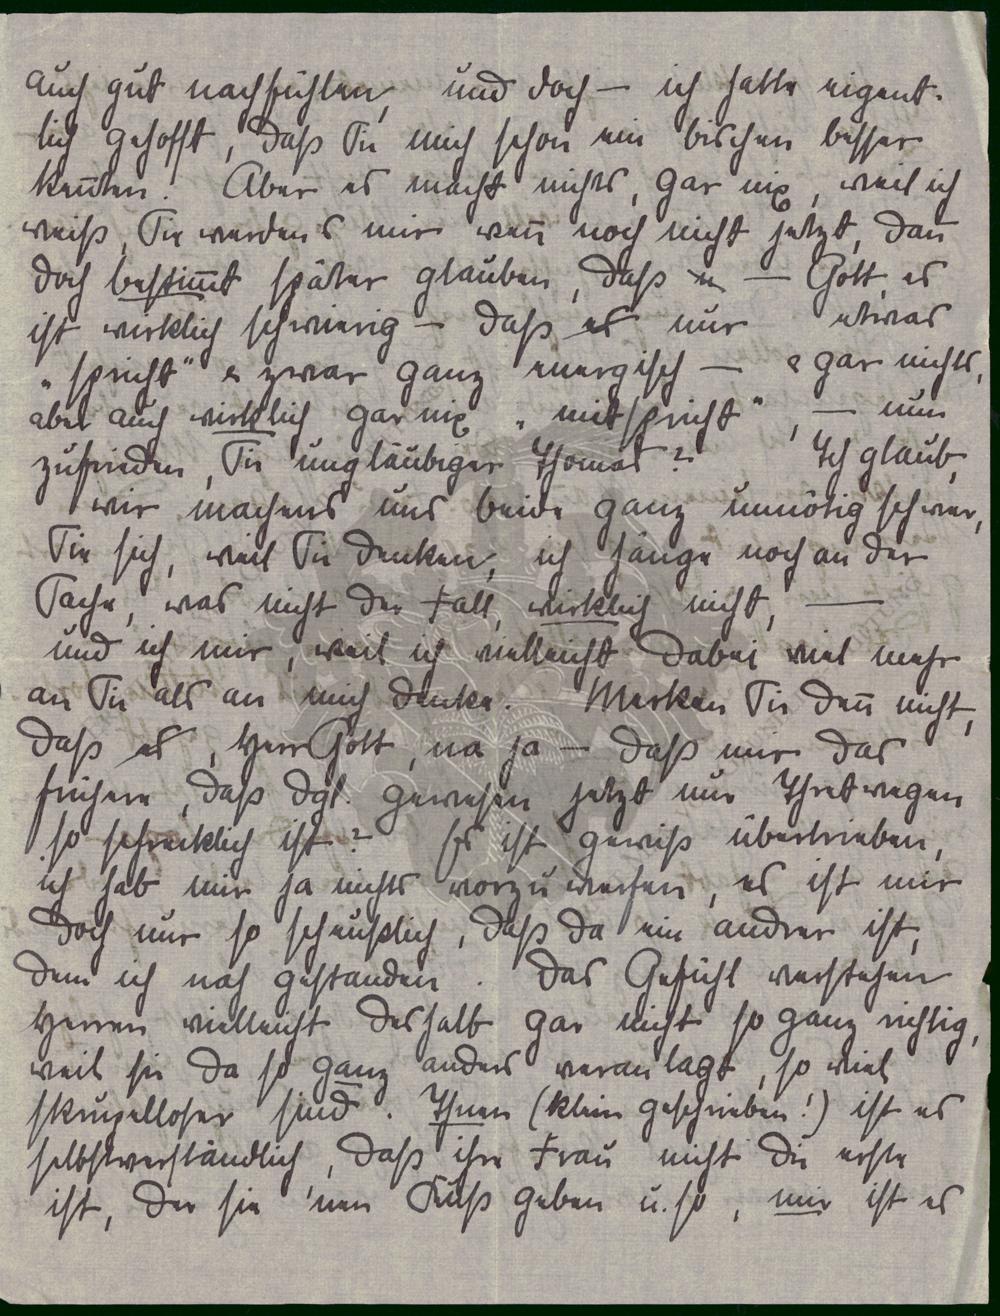 auch gut nachfühlen, und doch — ich hatte eigent-
lich gehofft, daß Sie mich schon ein bischen besser
kennten! Aber es macht nichts, gar nix, weil ich
weiß, Sie werden's mir wenn noch nicht jetzt, dann
doch bestimmt später glauben, daß — Gott, es
ist wirklich schwierig — daß es nur etwas
„spricht" & zwar ganz energisch — & gar nichts,
aber auch wirklich gar nix „mitspricht", — nun
zufrieden, Sie ungläubiger Thomas? Ich glaub,
wir machens uns beide ganz unnötig schwer,
Sie sich, weil Sie denken, ich hänge noch an der
Sache, was nicht der Fall, wirklich nicht, —
und ich mir, weil ich vielleicht dabei viel mehr
an Sie als an mich denke. Merken Sie denn nicht,
daß es, Herr Gott, na ja — daß mir das
frühere, daß dgl. gewesen jetzt nur Ihretwegen
so schrecklich ist? Es ist gewiß übertrieben,
ich hab mir ja nichts vorzuwerfen, es ist mir
doch nur so scheußlich, daß da ein andrer ist,
dem ich nah gestanden. Das Gefühl verstehen
Herren vielleicht deshalb gar nicht so ganz richtig,
weil sie da so ganz anders veranlagt, so viel
skrupelloser sind. Ihnen (klein geschrieben!) ist es
selbstverständlich, daß ihre Frau nicht die erste
ist, der sie 'nen Kuß geben u. so, mir ist es